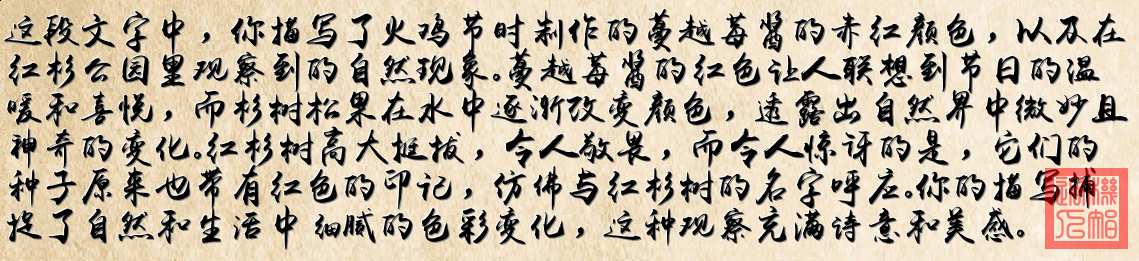 这段文字中，你描写了火鸡节时制作的蔓越莓酱的赤红颜色，以及在
红杉公园里观察到的自然现象。蔓越莓酱的红色让人联想到节日的温
暖和喜悦，而杉树松果在水中逐渐改变颜色，透露出自然界中微妙且
神奇的变化。红杉树高大挺拔，令人敬畏，而令人惊讶的是，它们的
种子原来也带有红色的印记，仿佛与红杉树的名字呼应。你的描写捕
捉了自然和生活中细腻的色彩变化，这种观察充满诗意和美感。